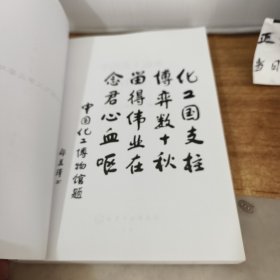 化工国支柱
博弈数十秋
留得伟业在
念君心血呕
中国化工博物馆题